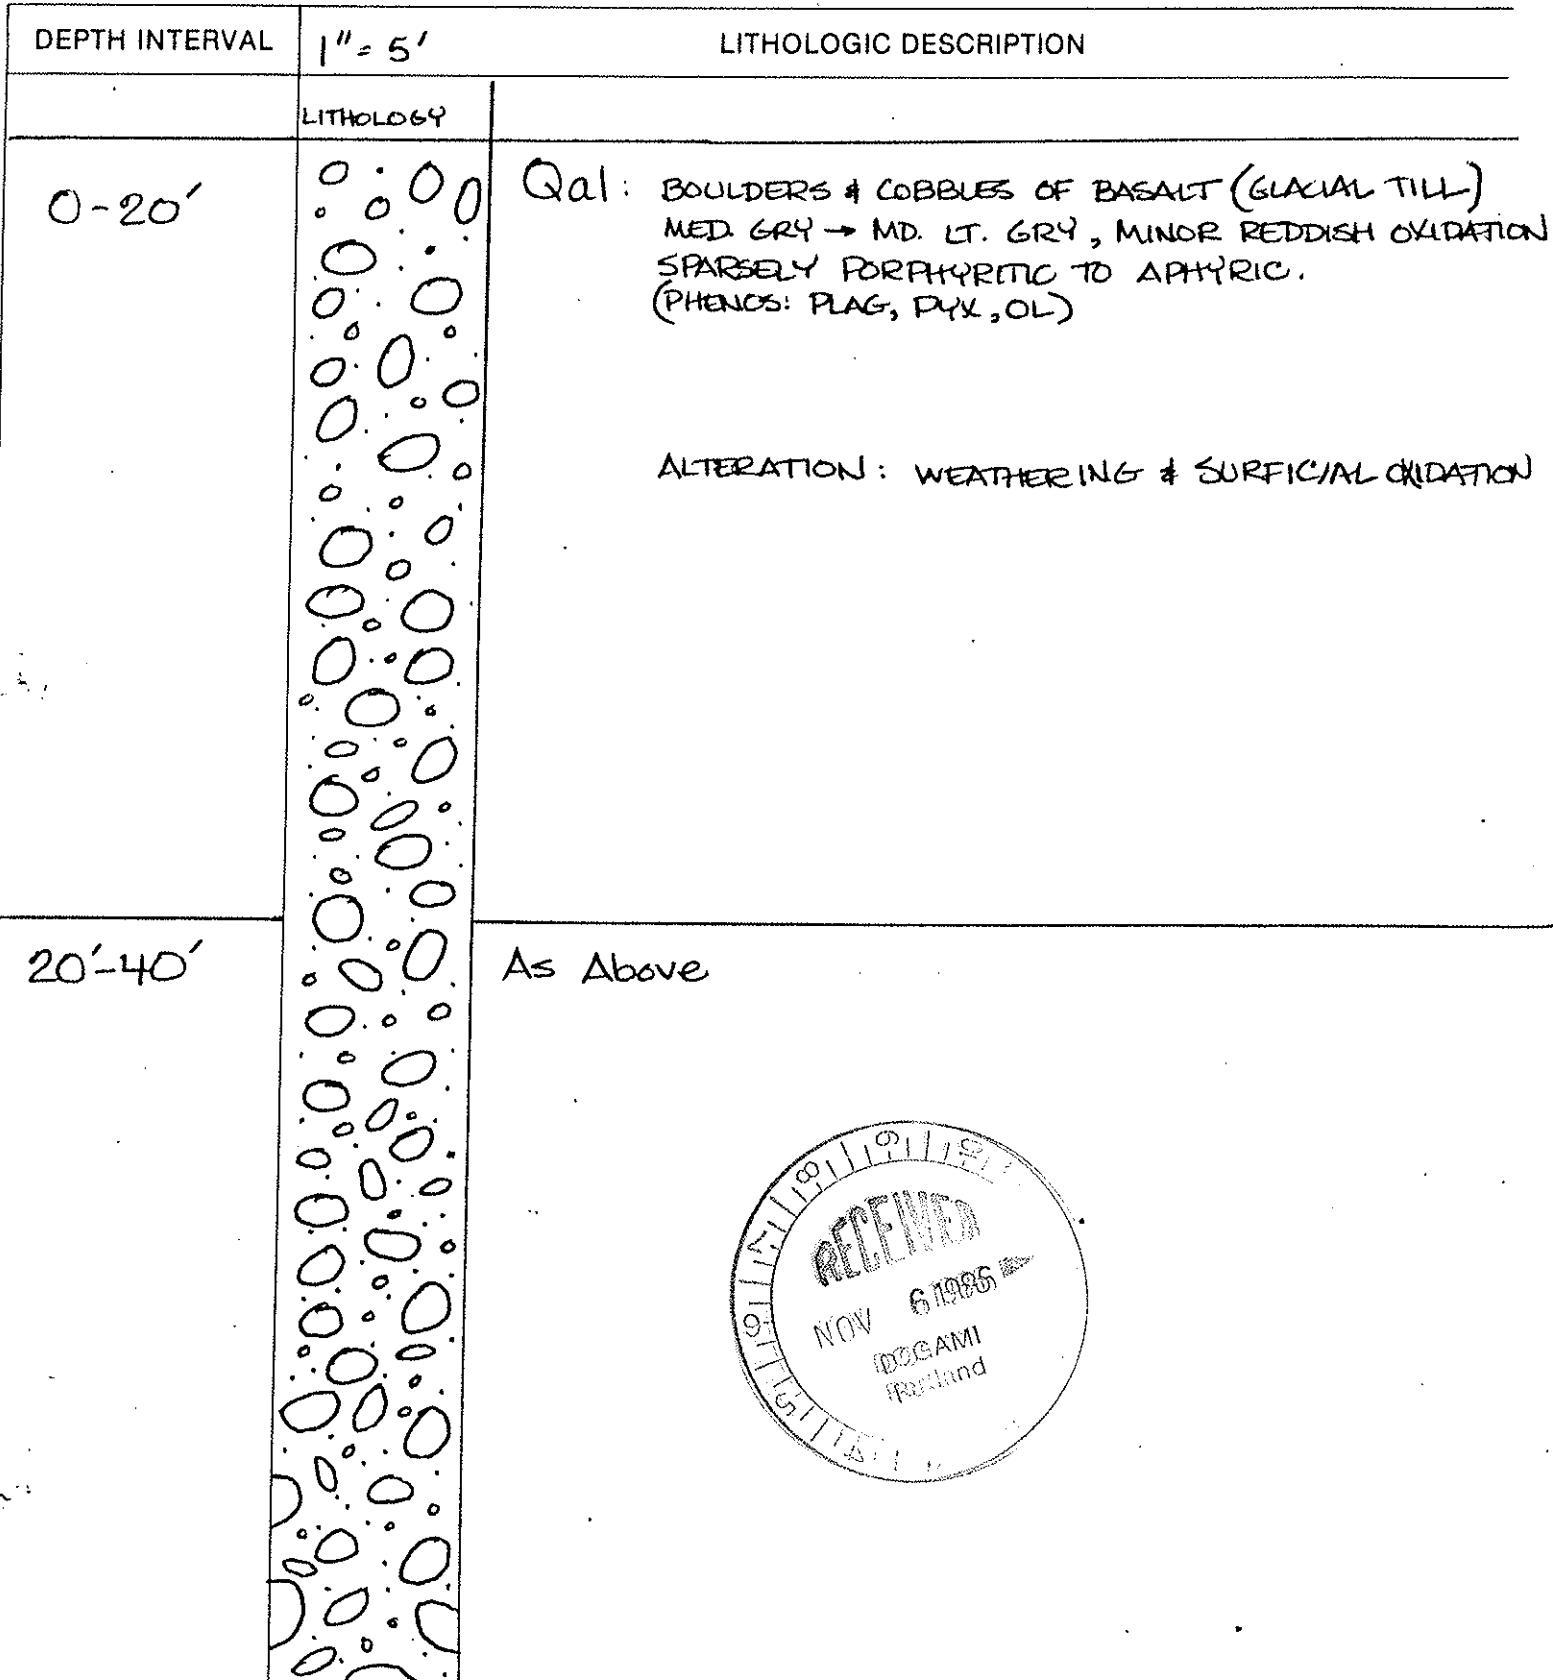 DEPTH INTERVAL 1"= 5' LITHOLOGIC DESCRIPTION
LITHOLOGY
0-20' Qal: BOULDERS & COBBLES OF BASALT (GLACIAL TILL)
MED. GRY → MD. LT. GRY, MINOR REDDISH OXIDATION
SPARSELY PORPHYRITIC TO APHYRIC.
(PHENOS: PLAG, PYX, OL)
ALTERATION: WEATHERING & SURFICIAL OXIDATION
20'-40' As Above
RECEIVED
NOV 6 1986
DOGAMI
Portland